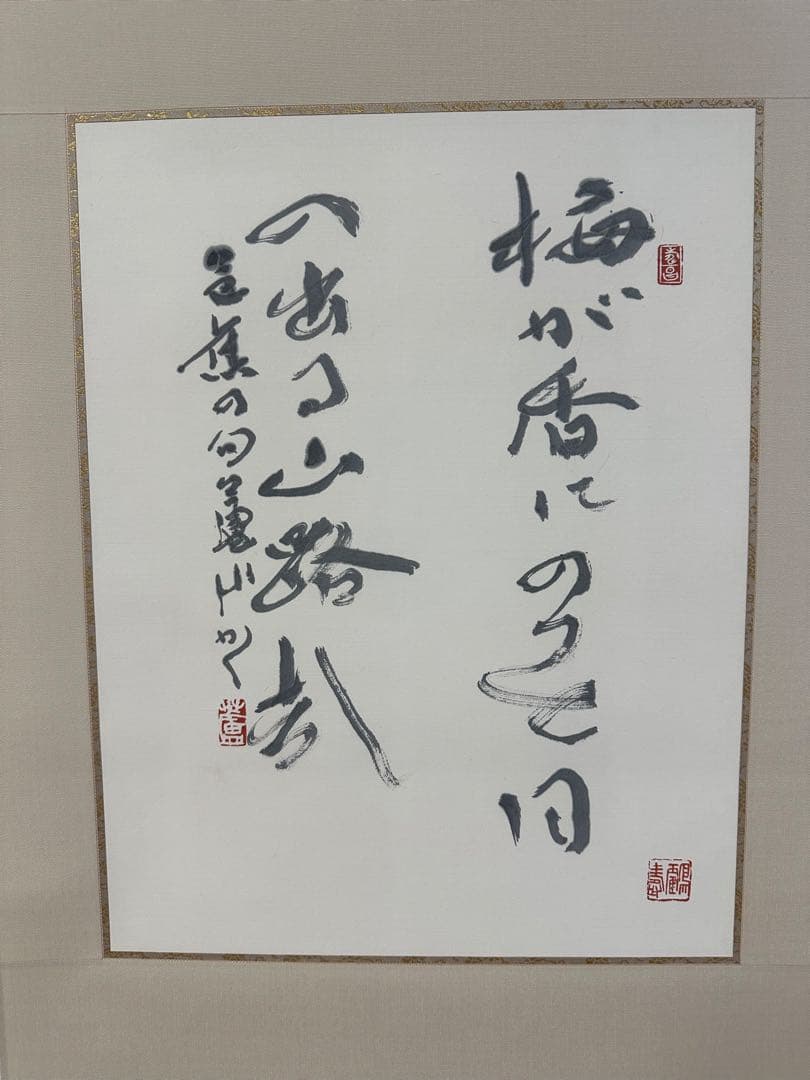 梅が香にのつと日
の出る山路哉
芭蕉の句 かく